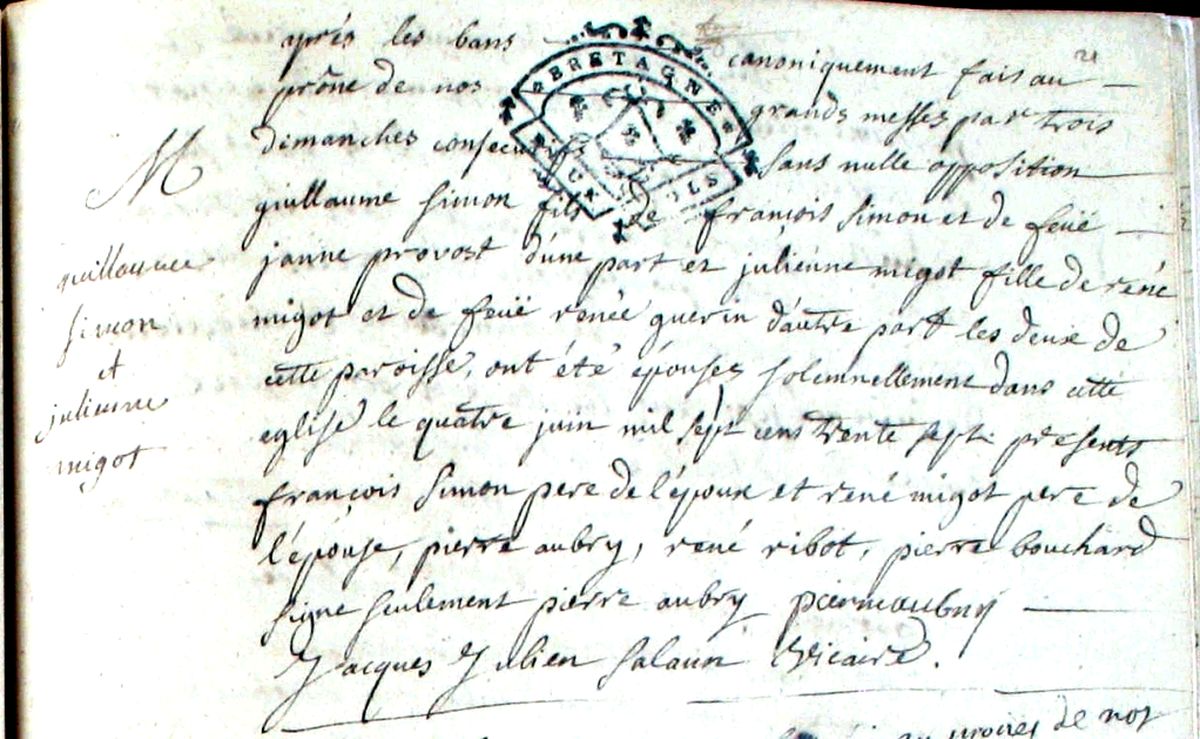 après les bans canoniquement fais au
prône de nos grands messes par trois
dimanches consecutifs sans nulle opposition
guillaume simon fils de françois simon et de feüe
janne provost d'une part et julienne migot fille de rené
migot et de feüe renée guerin d'autre part les deux de
cette paroisse, ont été épousez solemnellement dans cette
eglise le quatre juin mil sept cens trente sept presents
françois simon pere de l'époux et rené migot pere de
l'épouse, pierre aubry, rené ribot, pierre bouchard
signe seulement pierre aubry pierre aubry
Jacques Julien salaun vicaire.
de nos
M
guillaume
simon
et
julienne
migot
BRETAGNE